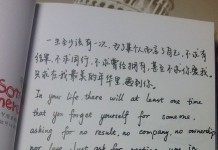 一生至少该有一次，为了某个人而忘了自己，不求有
结果，不求同行，不求曾经拥有，甚至不求你爱我
只求在我最美的年华里，遇到你。
In you life, there will at least one time
that you forget yourself for someone,
asking for no result, no company, no ownership
nor love. Just ask for meeting you in
Som